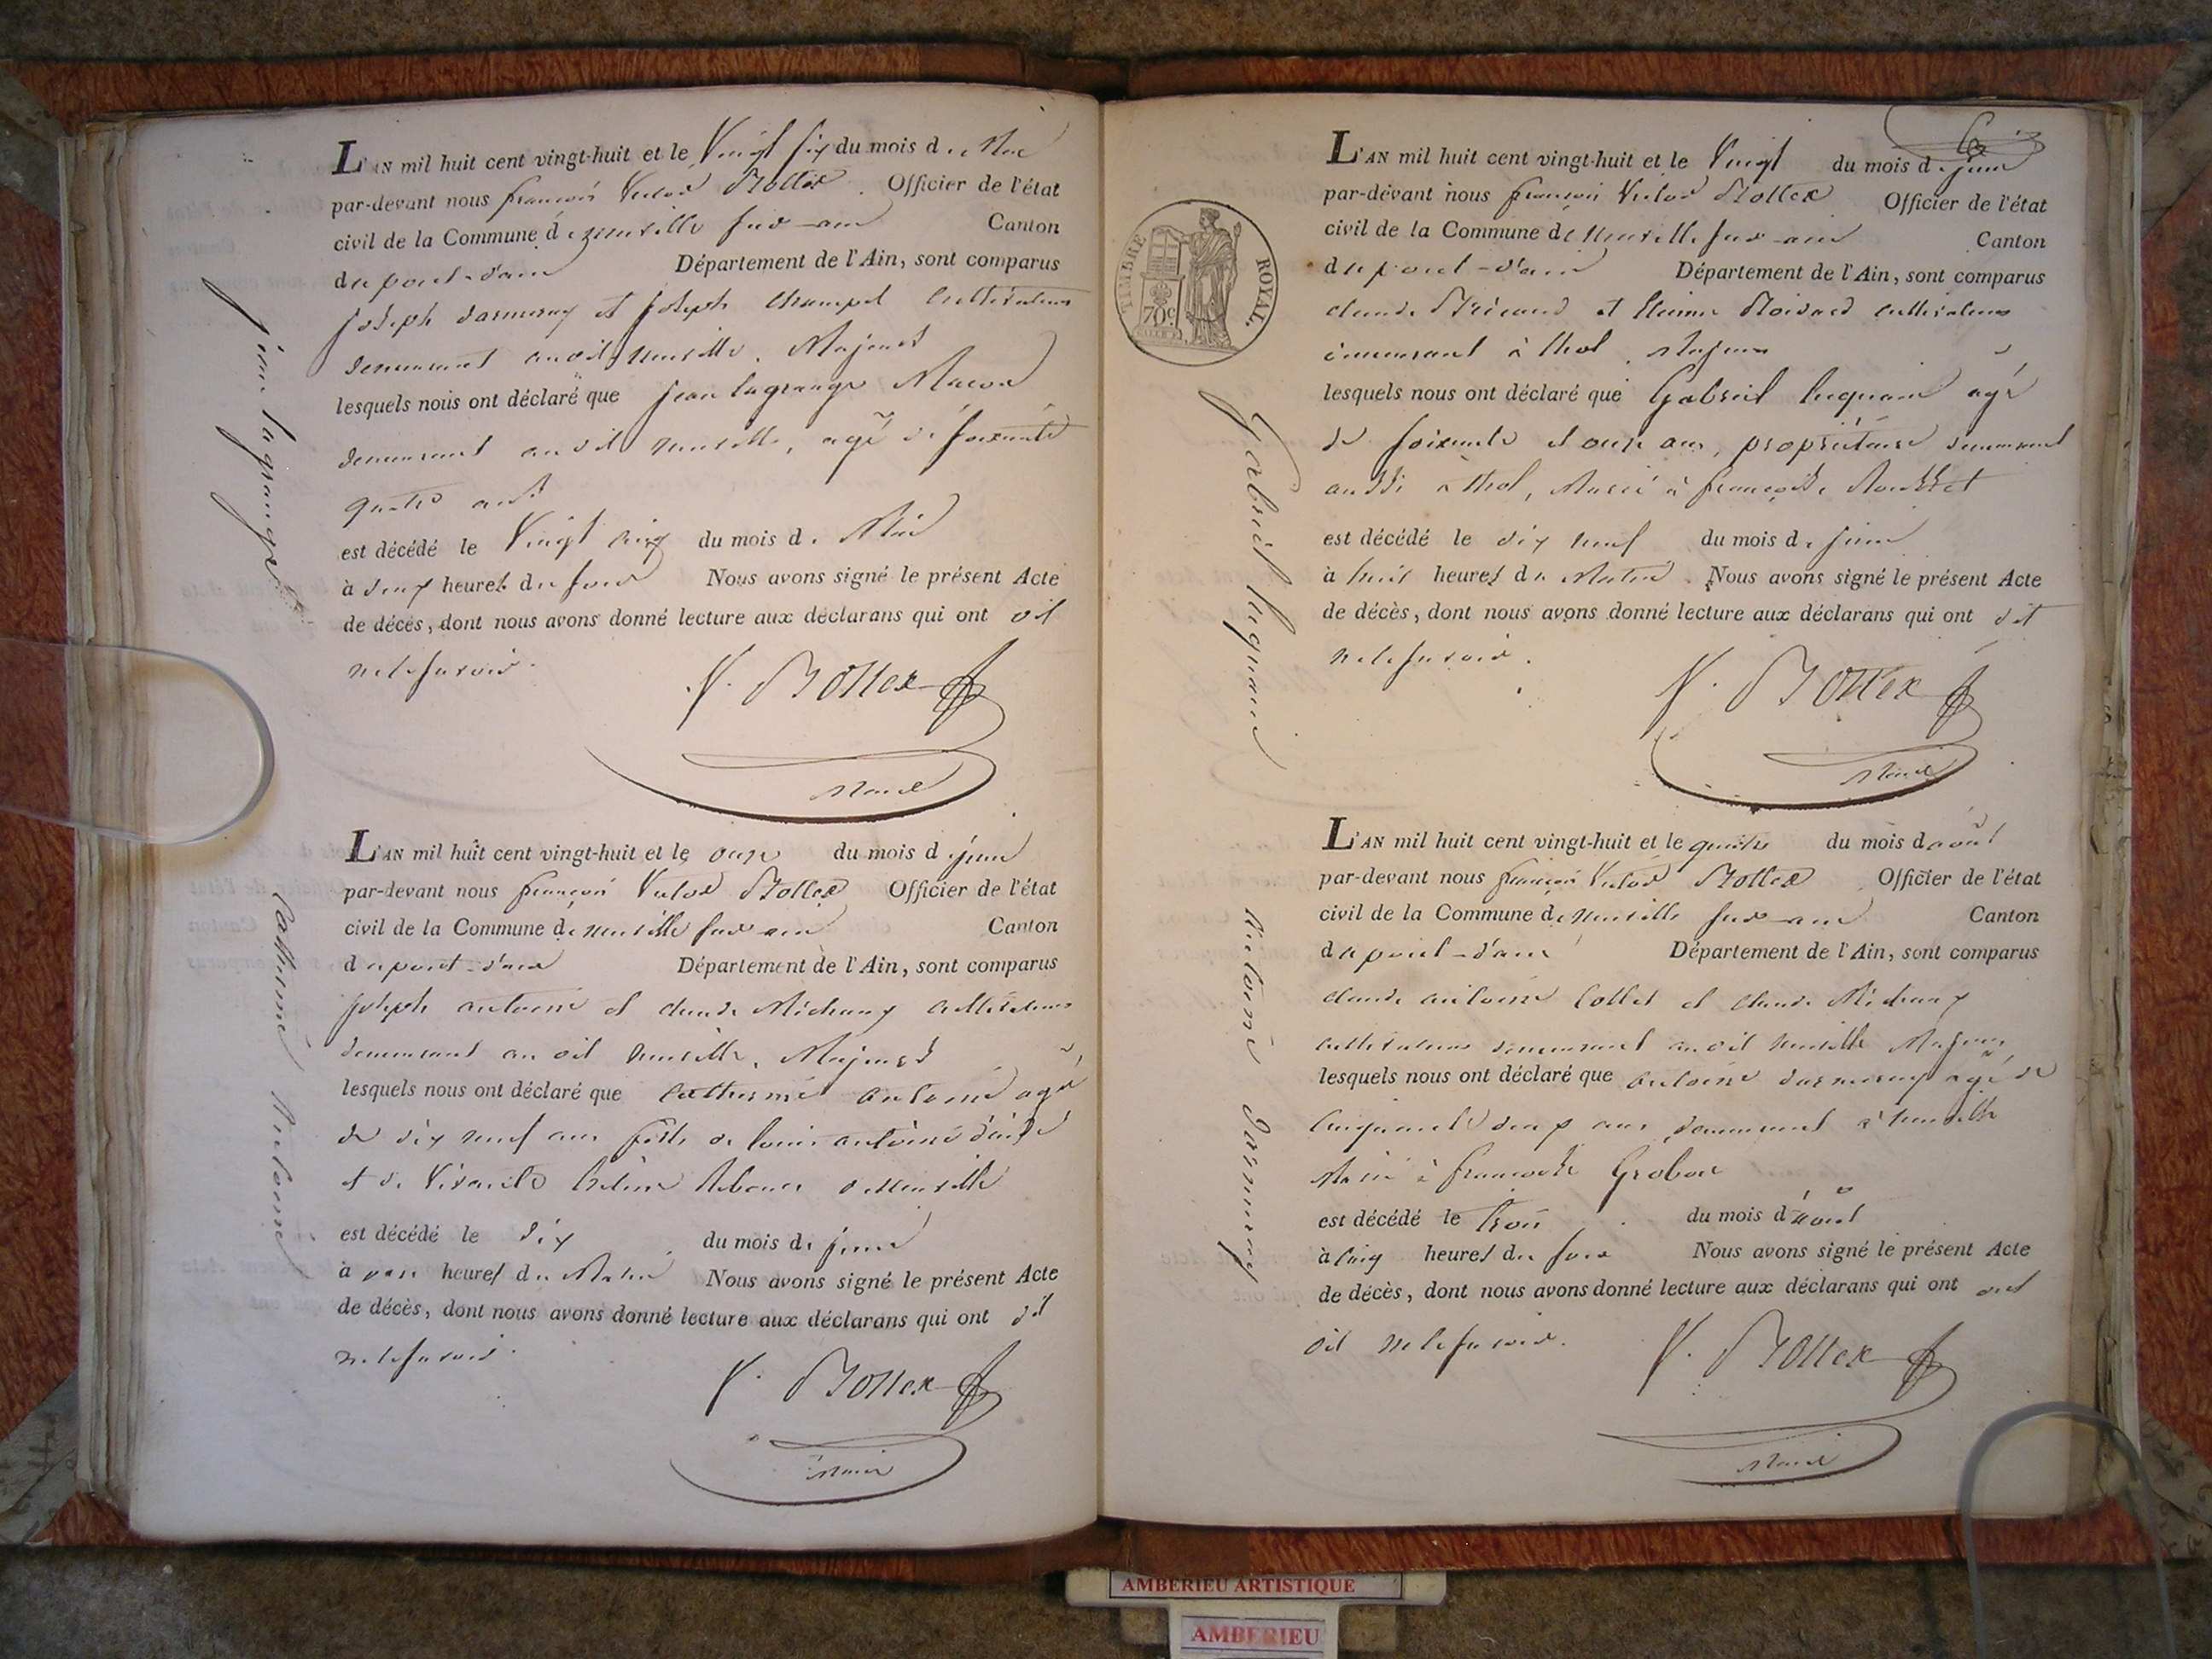 L'AN mil huit cent vingt-huit et le Vingt six du mois de Mai
par-devant nous françois Victor Bottex Officier de l'état
civil de la Commune de neuville sur-ain Canton
du pont-d'ain Département de l'Ain, sont comparus
joseph darmeray et joseph cultivateurs
demeurant au dit neuville. Majeurs
lesquels nous ont déclaré que jean lagrange Macon
demeurant au dit neuville, agé de soixante
quatre ans
est décédé le Vingt cinq du mois de Mai
à deux heures du soir Nous avons signé le présent Acte
de décès, dont nous avons donné lecture aux déclarans qui ont dit
ne le savoir.
V. Bottex
Maire
jean lagrange
L'AN mil huit cent vingt-huit et le onze du mois de juin
par-devant nous françois Victor Bottex Officier de l'état
civil de la Commune de neuville sur-ain Canton
du pont-d'ain Département de l'Ain, sont comparus
joseph antoine et claude Michaux cultivateurs
demeurant au dit neuville. Majeurs
lesquels nous ont déclaré que catherine antoine agé
de dix neuf ans fille de louis antoine
et de de neuville
est décédé le dix du mois de juin
à onze heures du Matin Nous avons signé le présent Acte
de décès, dont nous avons donné lecture aux déclarans qui ont dit
ne le savoir.
V. Bottex
Maire
Catherine Antoine
L'AN mil huit cent vingt-huit et le Vingt du mois de juin
par-devant nous françois Victor Bottex Officier de l'état
civil de la Commune de neuville sur-ain Canton
du pont-d'ain Département de l'Ain, sont comparus
claude et Etienne cultivateurs
demeurant à thol. Majeurs
lesquels nous ont déclaré que Gabriel luquain agé
de soixante et onze ans, propriétaire demeurant
aussi à thol, Marié à françoise Rousset
est décédé le dix neuf du mois de juin
à huit heures du Matin. Nous avons signé le présent Acte
de décès, dont nous avons donné lecture aux déclarans qui ont dit
ne le savoir.
V. Bottex
Maire
TIMBRE ROYAL.
70c
Gabriel luquain
L'AN mil huit cent vingt-huit et le quatre du mois d'août
par-devant nous françois Victor Bottex Officier de l'état
civil de la Commune de neuville sur-ain Canton
du pont-d'ain Département de l'Ain, sont comparus
claude antoine Collet et claude Michaux
cultivateurs demeurant au dit neuville Majeurs
lesquels nous ont déclaré que antoine darmeray agé de
cinquante deux ans demeurant à neuville
Marié à françoise Grobon
est décédé le trois du mois d'août
à cinq heures du soir Nous avons signé le présent Acte
de décès, dont nous avons donné lecture aux déclarans qui ont ont
dit ne le savoir.
V. Bottex
Maire
Antoine darmeray
AMBERIEU ARTISTIQUE
AMBERIEU